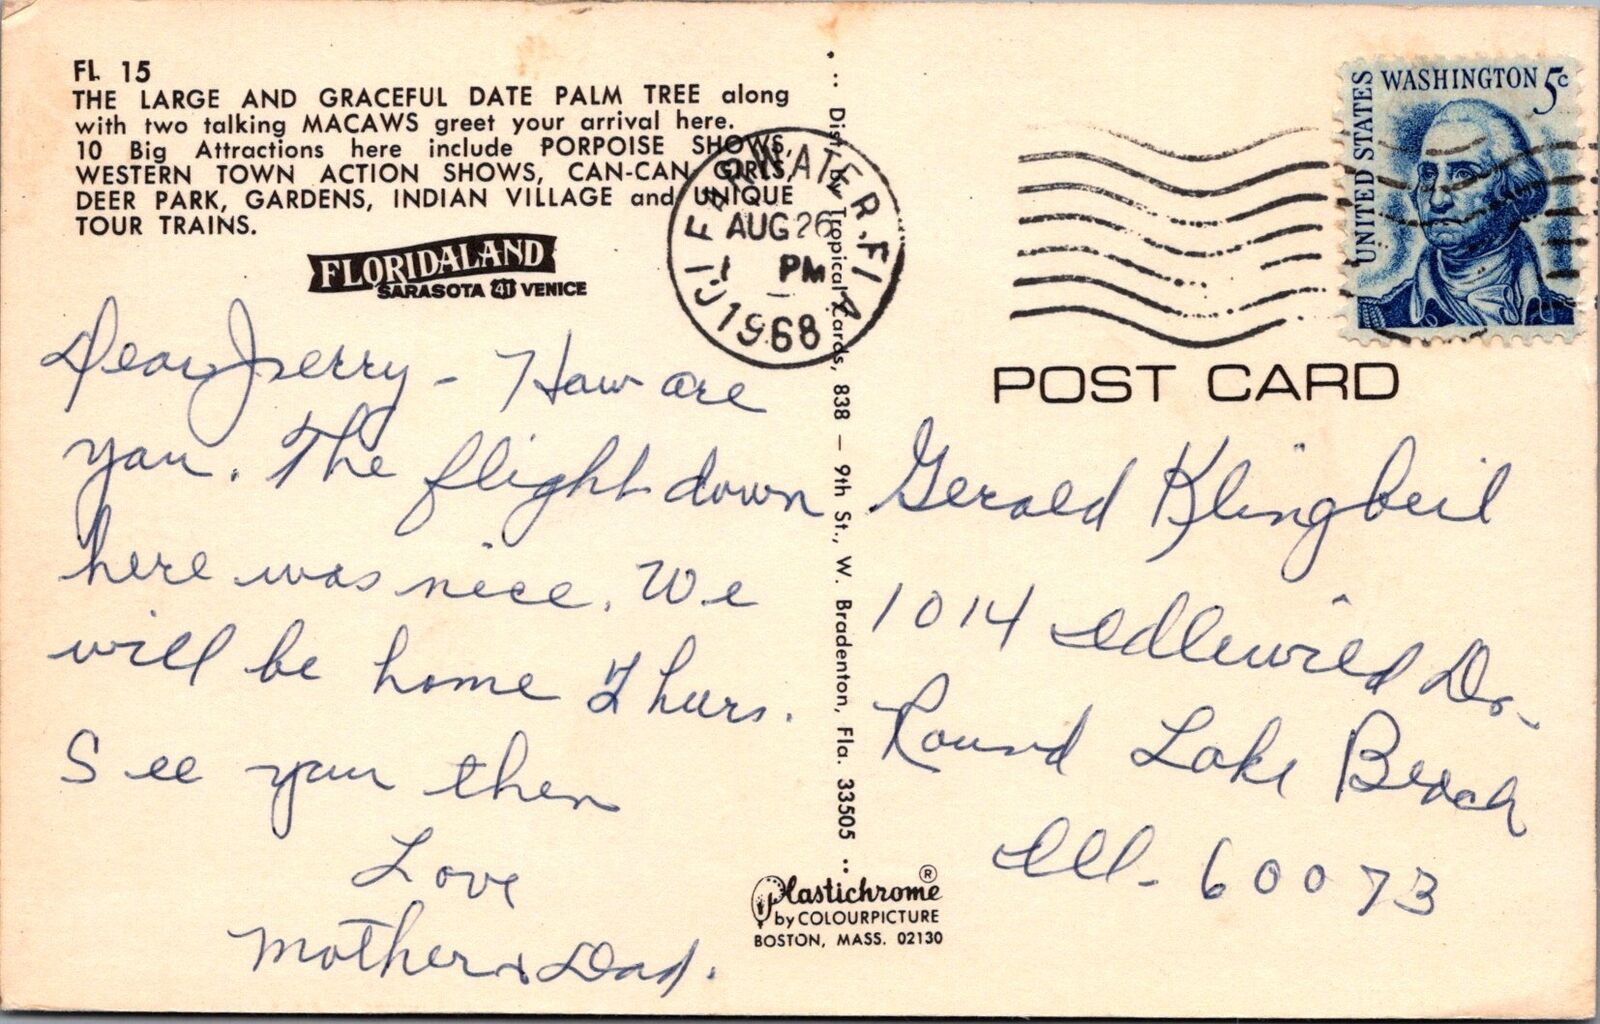 FL 15
THE LARGE AND GRACEFUL DATE PALM TREE along
with two talking MACAWS greet your arrival here.
10 Big Attractions here include PORPOISE SHOWS,
WESTERN TOWN ACTION SHOWS, CAN-CAN GIRLS,
DEER PARK, GARDENS, INDIAN VILLAGE and UNIQUE
TOUR TRAINS.
FLORIDALAND
SARASOTA 41 VENICE
Dear Jerry - How are
you. The flight down
here was nice. We
will be home Thurs.
See you then
Love
Mother & Dad.
Dist. by Tropical Cards, 838 - 9th St., W. Bradenton, Fla. 33505
Plastichrome ®
by COLOURPICTURE
BOSTON, MASS. 02130
AUG 26
PM
1968
UNITED STATES
WASHINGTON 5c
POST CARD
Gerald Klingbeil
1014 Idlewild Dr.
Round Lake Beach
Ill. 60073